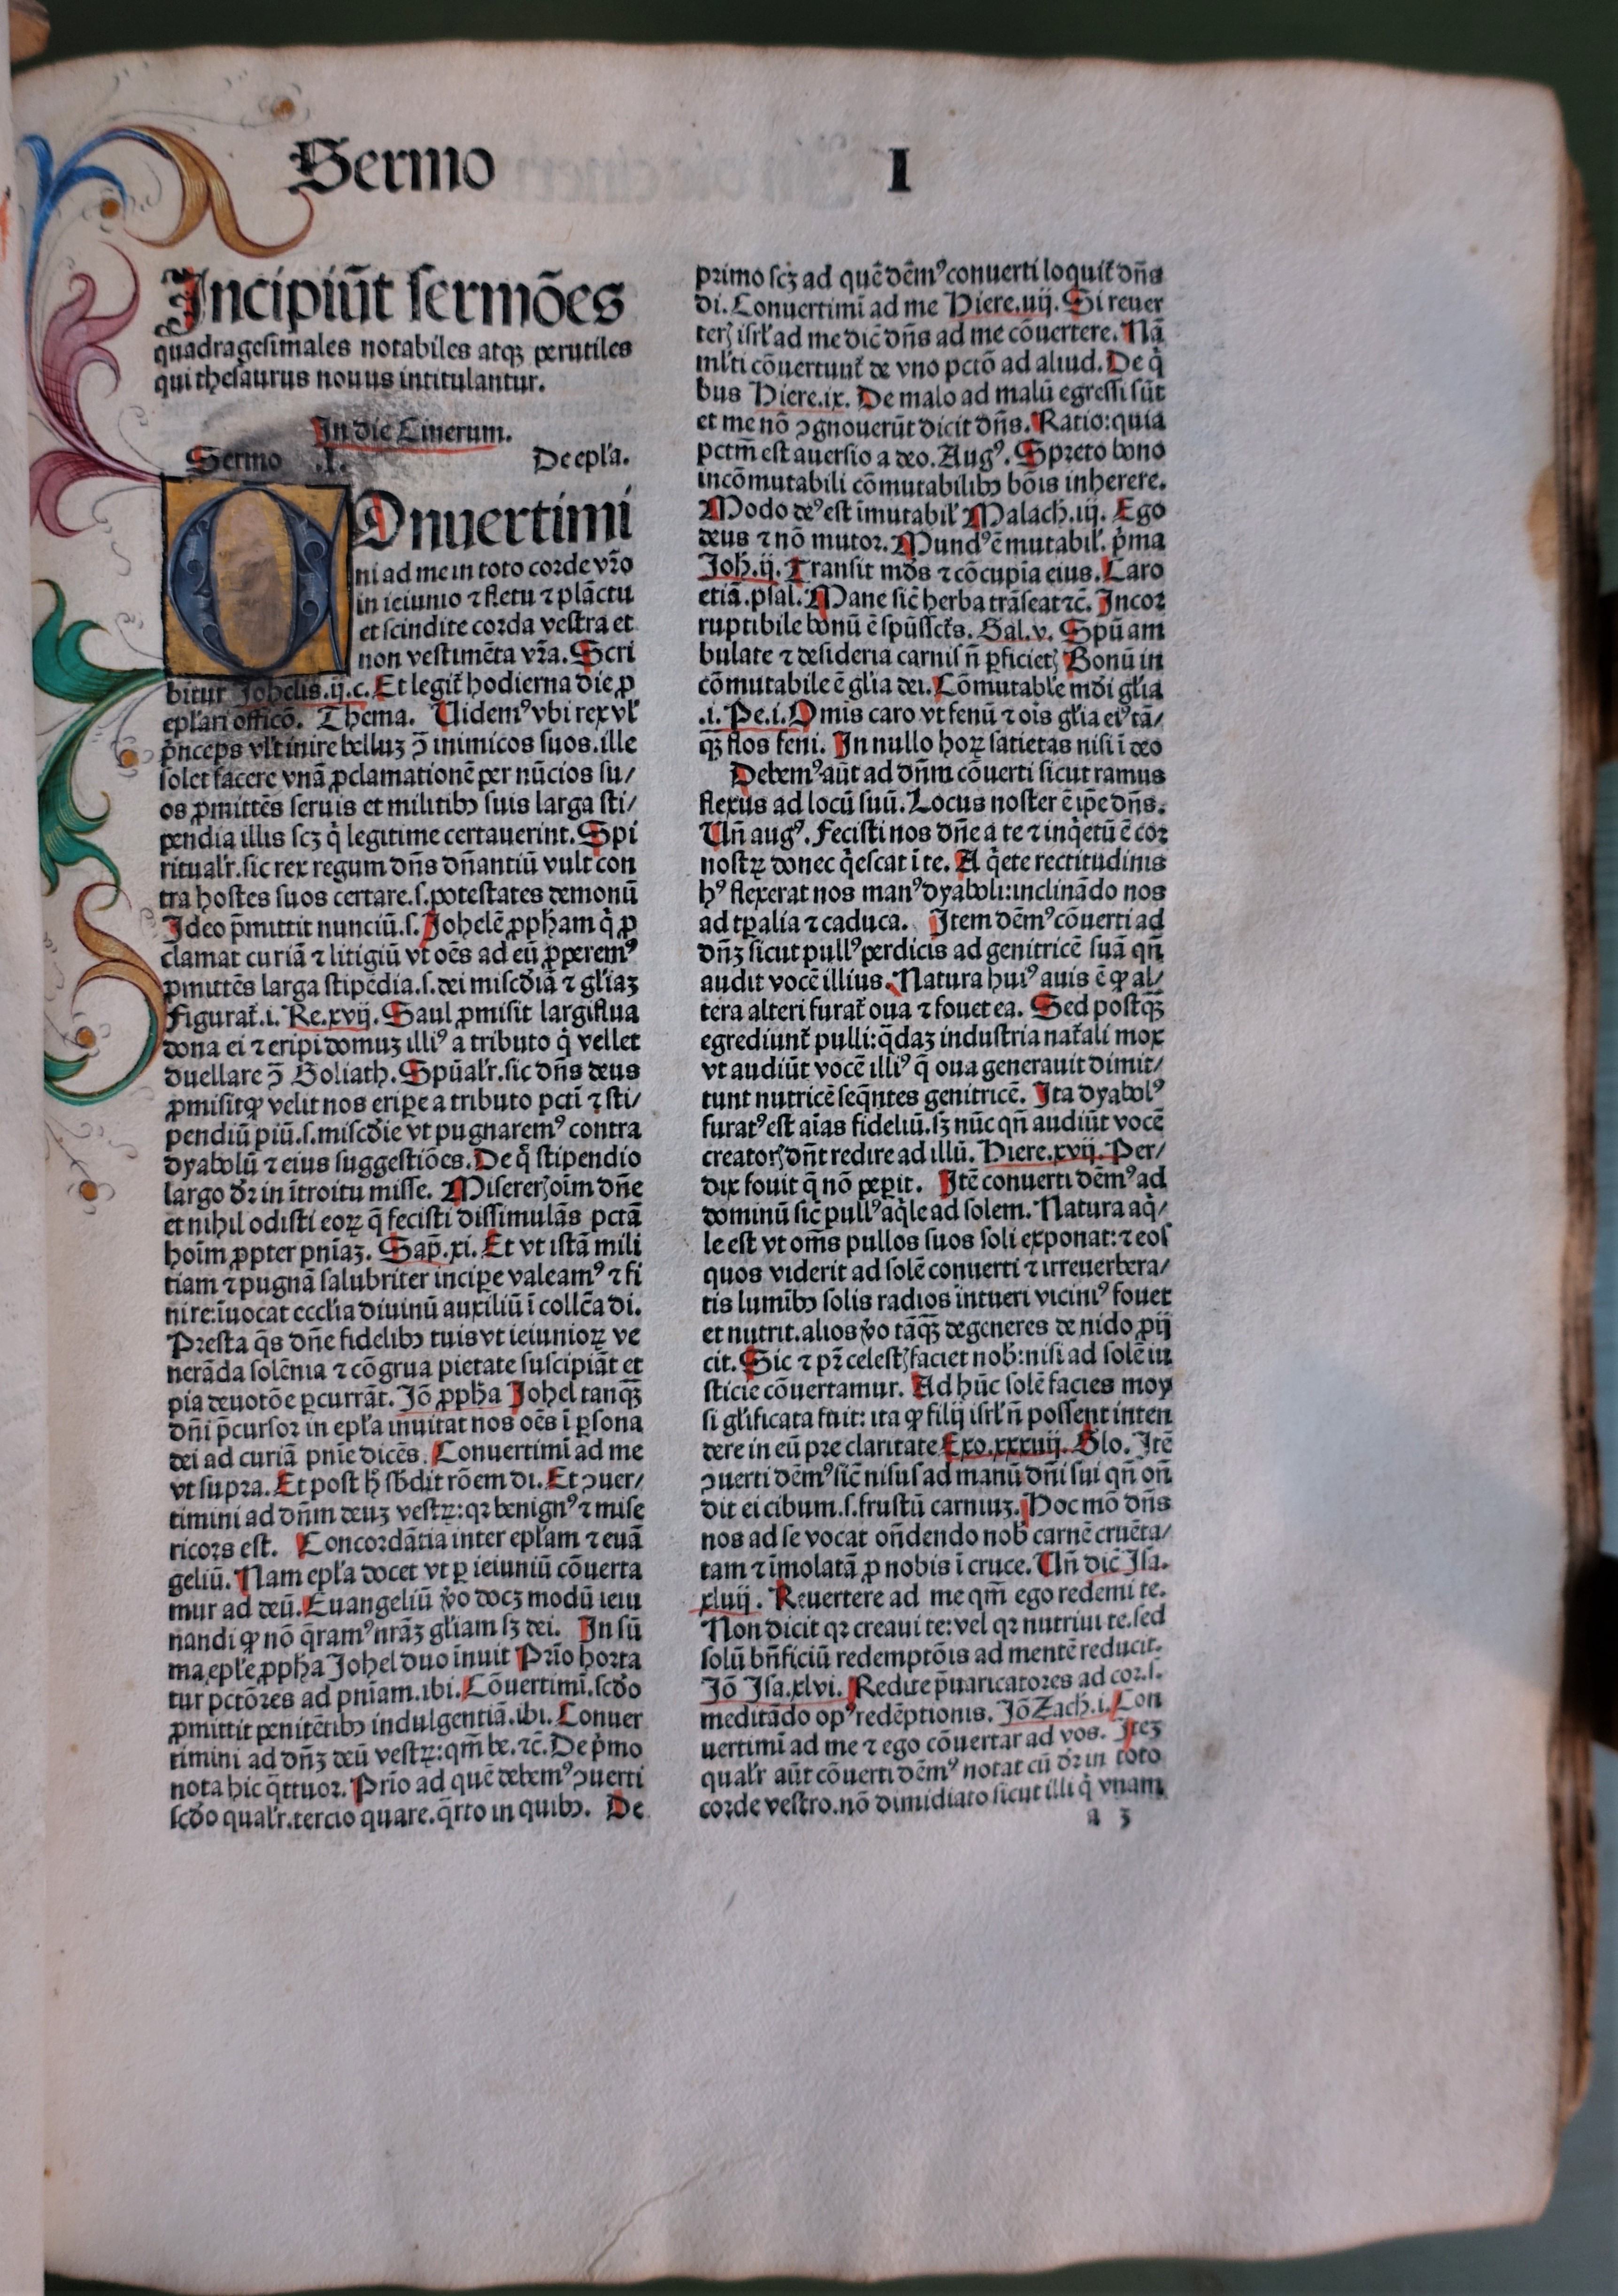 Sermo I
Incipiūt sermōes
quadragesimales notabiles atqꝫ perutiles
qui thesaurus nouus intitulantur.
In die Cinerum.
Sermo .I. De epľa.
COnuertimi
ni ad me in toto corde vr̄o
in ieiunio ⁊ fletu ⁊ plāctu
et scindite corda vestra et
non vestimēta vr̄a. Scri
bitur Johelis .ij. c. Et legit᷑ hodierna die ꝓ
epľari officō. Thema. Uidemꝰ vbi rex vľ
p̄nceps vľt inire belluꝫ ↄ̄ inimicos suos. ille
solet facere vnā ꝓclamationē per nūcios su/
os ꝓmittēs seruis et militibꝰ suis larga sti/
pendia illis scꝫ q̇ legitime certauerint. Spi
ritualr̄. sic rex regum dn̄s dn̄antiū vult con
tra hostes suos certare .s. potestates demonū
Ideo p̄mittit nunciū .s. Johelē ꝓpham q̇ ꝓ
clamat curiā ⁊ litigiū vt oēs ad eū ꝓperemꝰ
ꝓmittēs larga stipēdia .s. dei miscd̄iā ⁊ gľiaꝫ
Figurat᷑ .i. Re. xvij. Saul ꝓmisit largiflua
dona ei ⁊ eripi domuꝫ illiꝰ a tributo q̇ vellet
duellare ↄ̄ Goliath. Spūalr̄. sic dn̄s deus
ꝓmisit ꝙ velit nos eripe a tributo pcti ⁊ sti/
pendiū piū .s. miscd̄ie vt pugnaremꝰ contra
dyabolū ⁊ eius suggestiōes. De q̇ stipendio
largo dr̄ in ītroitu misse. Misererꝫ oīm dn̄e
et nihil odisti eoꝝ q̄ fecisti dissimulās pctā
hoīm ꝓpter pn̄iaꝫ. Sap̄. xi. Et vt istā mili
tiam ⁊ pugnā salubriter incipe valeamꝰ ⁊ fi
nire: īuocat eccľia diuinū auxiliū ī collēca di.
Presta q̄s dn̄e fidelibꝰ tuis vt ieiunioꝝ ve
nerāda solēnia ⁊ cōgrua pietate suscipiāt et
pia deuotōe ꝑcurrāt. Jō ꝓpha Johel tanqꝫ̄
dn̄i p̄cursor in epľa inuitat nos oēs ī ꝑsona
dei ad curiā pn̄ie dicēs. Conuertimī ad me
vt supra. Et post h̄ sb̄dit rōem di. Et ↄuer/
timini ad dn̄m deuꝫ vestꝝ: qꝛ benignꝰ ⁊ mise
ricors est. Concordātia inter epľam ⁊ euā
geliū. Nam epľa docet vt ꝑ ieiuniū cōuerta
mur ad deū. Euangeliū ꝟo docꝫ modū ieiu
nandi ꝙ nō q̄ramꝰ nr̄aꝫ gľiam sꝫ dei. In sū
ma epľe ꝓpha Johel duo inuit Prīo horta
tur pctōres ad pn̄iam. ibi. Cōuertimī. scd̄o
ꝓmittit penitētibꝰ indulgentiā. ibi. Conuer
timini ad dn̄ꝫ deū vestꝝ: qm̄ be. ⁊c̄. De p̄mo
nota hic q̄ttuor. Prīo ad quē debemꝰ ↄuerti
scd̄o qualr̄. tercio quare. q̄rto in quibꝰ. De
primo scꝫ ad quē dēmꝰ conuerti loquit᷑ dn̄s
di. Conuertimī ad me Hiere. iiij. Si reuer
terꝫ isrľ ad me dic̄ dn̄s ad me cōuertere. Nā
mľti cōuertunt᷑ de vno pctō ad aliud. De q̇
bus Hiere. ix. De malo ad malū egressi sūt
et me nō ↄgnouerūt dicit dn̄s. Ratio: quia
pctm̄ est auersio a deo. Augꝰ. Spreto bono
incōmutabili cōmutabilibꝰ bōis inherere.
Modo deꝰ est īmutabiľ Malach. iij. Ego
deus ⁊ nō mutor. Mundꝰ ē mutabiľ. p̄ma
Joh̄. ij. Transit mūds ⁊ cōcupia eius. Caro
etiā. psal. Mane sic̄ herba trāseat ⁊c̄. Incor
ruptibile bonū ē spūsscts. Gal. v. Spū am
bulate ⁊ desideria carnis n̄ ꝑficietꝫ Bonū in
cōmutabile ē gľia dei. Cōmutabľe mūdi gľia
.i. Pe. i. Omīs caro vt fenū ⁊ oīs gľia eiꝰ tā/
qꝫ̄ flos feni. In nullo hoꝝ satietas nisi ī deo
Debemꝰ aūt ad dn̄m cōuerti sicut ramus
flexus ad locū suū. Locus noster ē ip̄e dn̄s.
Un̄ augꝰ. Fecisti nos dn̄e a te ⁊ inq̇etū ē cor
nostꝝ donec q̇escat ī te. A q̇ete rectitudinis
hꝰ flexerat nos manꝰ dyaboli: inclināndo nos
ad tꝑalia ⁊ caduca. Item dēmꝰ cōuerti ad
dn̄ꝫ sicut pullꝰ perdicis ad genitricē suā qn̄
audit vocē illius. Natura huiꝰ auis ē ꝙ al/
tera alteri furat᷑ oua ⁊ fouet ea. Sed postqꝫ̄
egrediunt᷑ pulli: q̄daꝫ industria nat᷑ali mox
vt audiūt vocē illiꝰ q̄ oua generauit dimit/
tunt nutricē seq̄ntes genitricē. Ita dyabolꝰ
furatꝰ est aīas fideliū. sꝫ nūc qn̄ audiūt vocē
creatorꝫ dn̄t redire ad illū. Hiere. xvij. Per/
dix fouit q̄ nō peꝑit. Itē conuerti dēmꝰ ad
dominū sic̄ pullꝰ aq̇le ad solem. Natura aq̇/
le est vt om̄s pullos suos soli exponat: ⁊ eos
quos viderit ad solē conuerti ⁊ irreuerbera/
tis lumībꝰ solis radios intueri viciniꝰ fouet
et nutrit. alios ꝟo tāqꝫ̄ degeneres de nido ꝓij
cit. Sic ⁊ pr̄ celestꝫ faciet nob̄: nisi ad solē iu
sticie cōuertamur. Ad hūc solē facies moy
si gľificata fuit: ita ꝙ filij isrľ n̄ possent inten
dere in eū pre claritate Exo. xxxiiij. Glo. Itē
ↄuerti dēmꝰ sic̄ nisus ad manū dn̄i sui qn̄ on̄
dit ei cibum .s. frustū carniuꝫ. Hoc mō dn̄s
nos ad se vocat on̄dendo nob̄ carnē cruēta/
tam ⁊ īmolatā ꝓ nobis ī cruce. Un̄ dic̄ Isa.
xliiij. Reuertere ad me qm̄ ego redemi te.
Non dicit qꝛ creaui te: vel qꝛ nutriui te. sed
solū bn̄ficiū redemptōis ad mentē reducit.
Jō Isa. xlvi. Redite p̄uaricatores ad cor .s.
meditādo opꝰ redēptionis. Jō Zach. i. Con
uertimī ad me ⁊ ego cōuertar ad vos. Iteꝫ
qualr̄ aūt cōuerti dēmꝰ notat cū dr̄ in toto
corde vestro. nō dimidiato sicut illi q̇ vnam
a 3